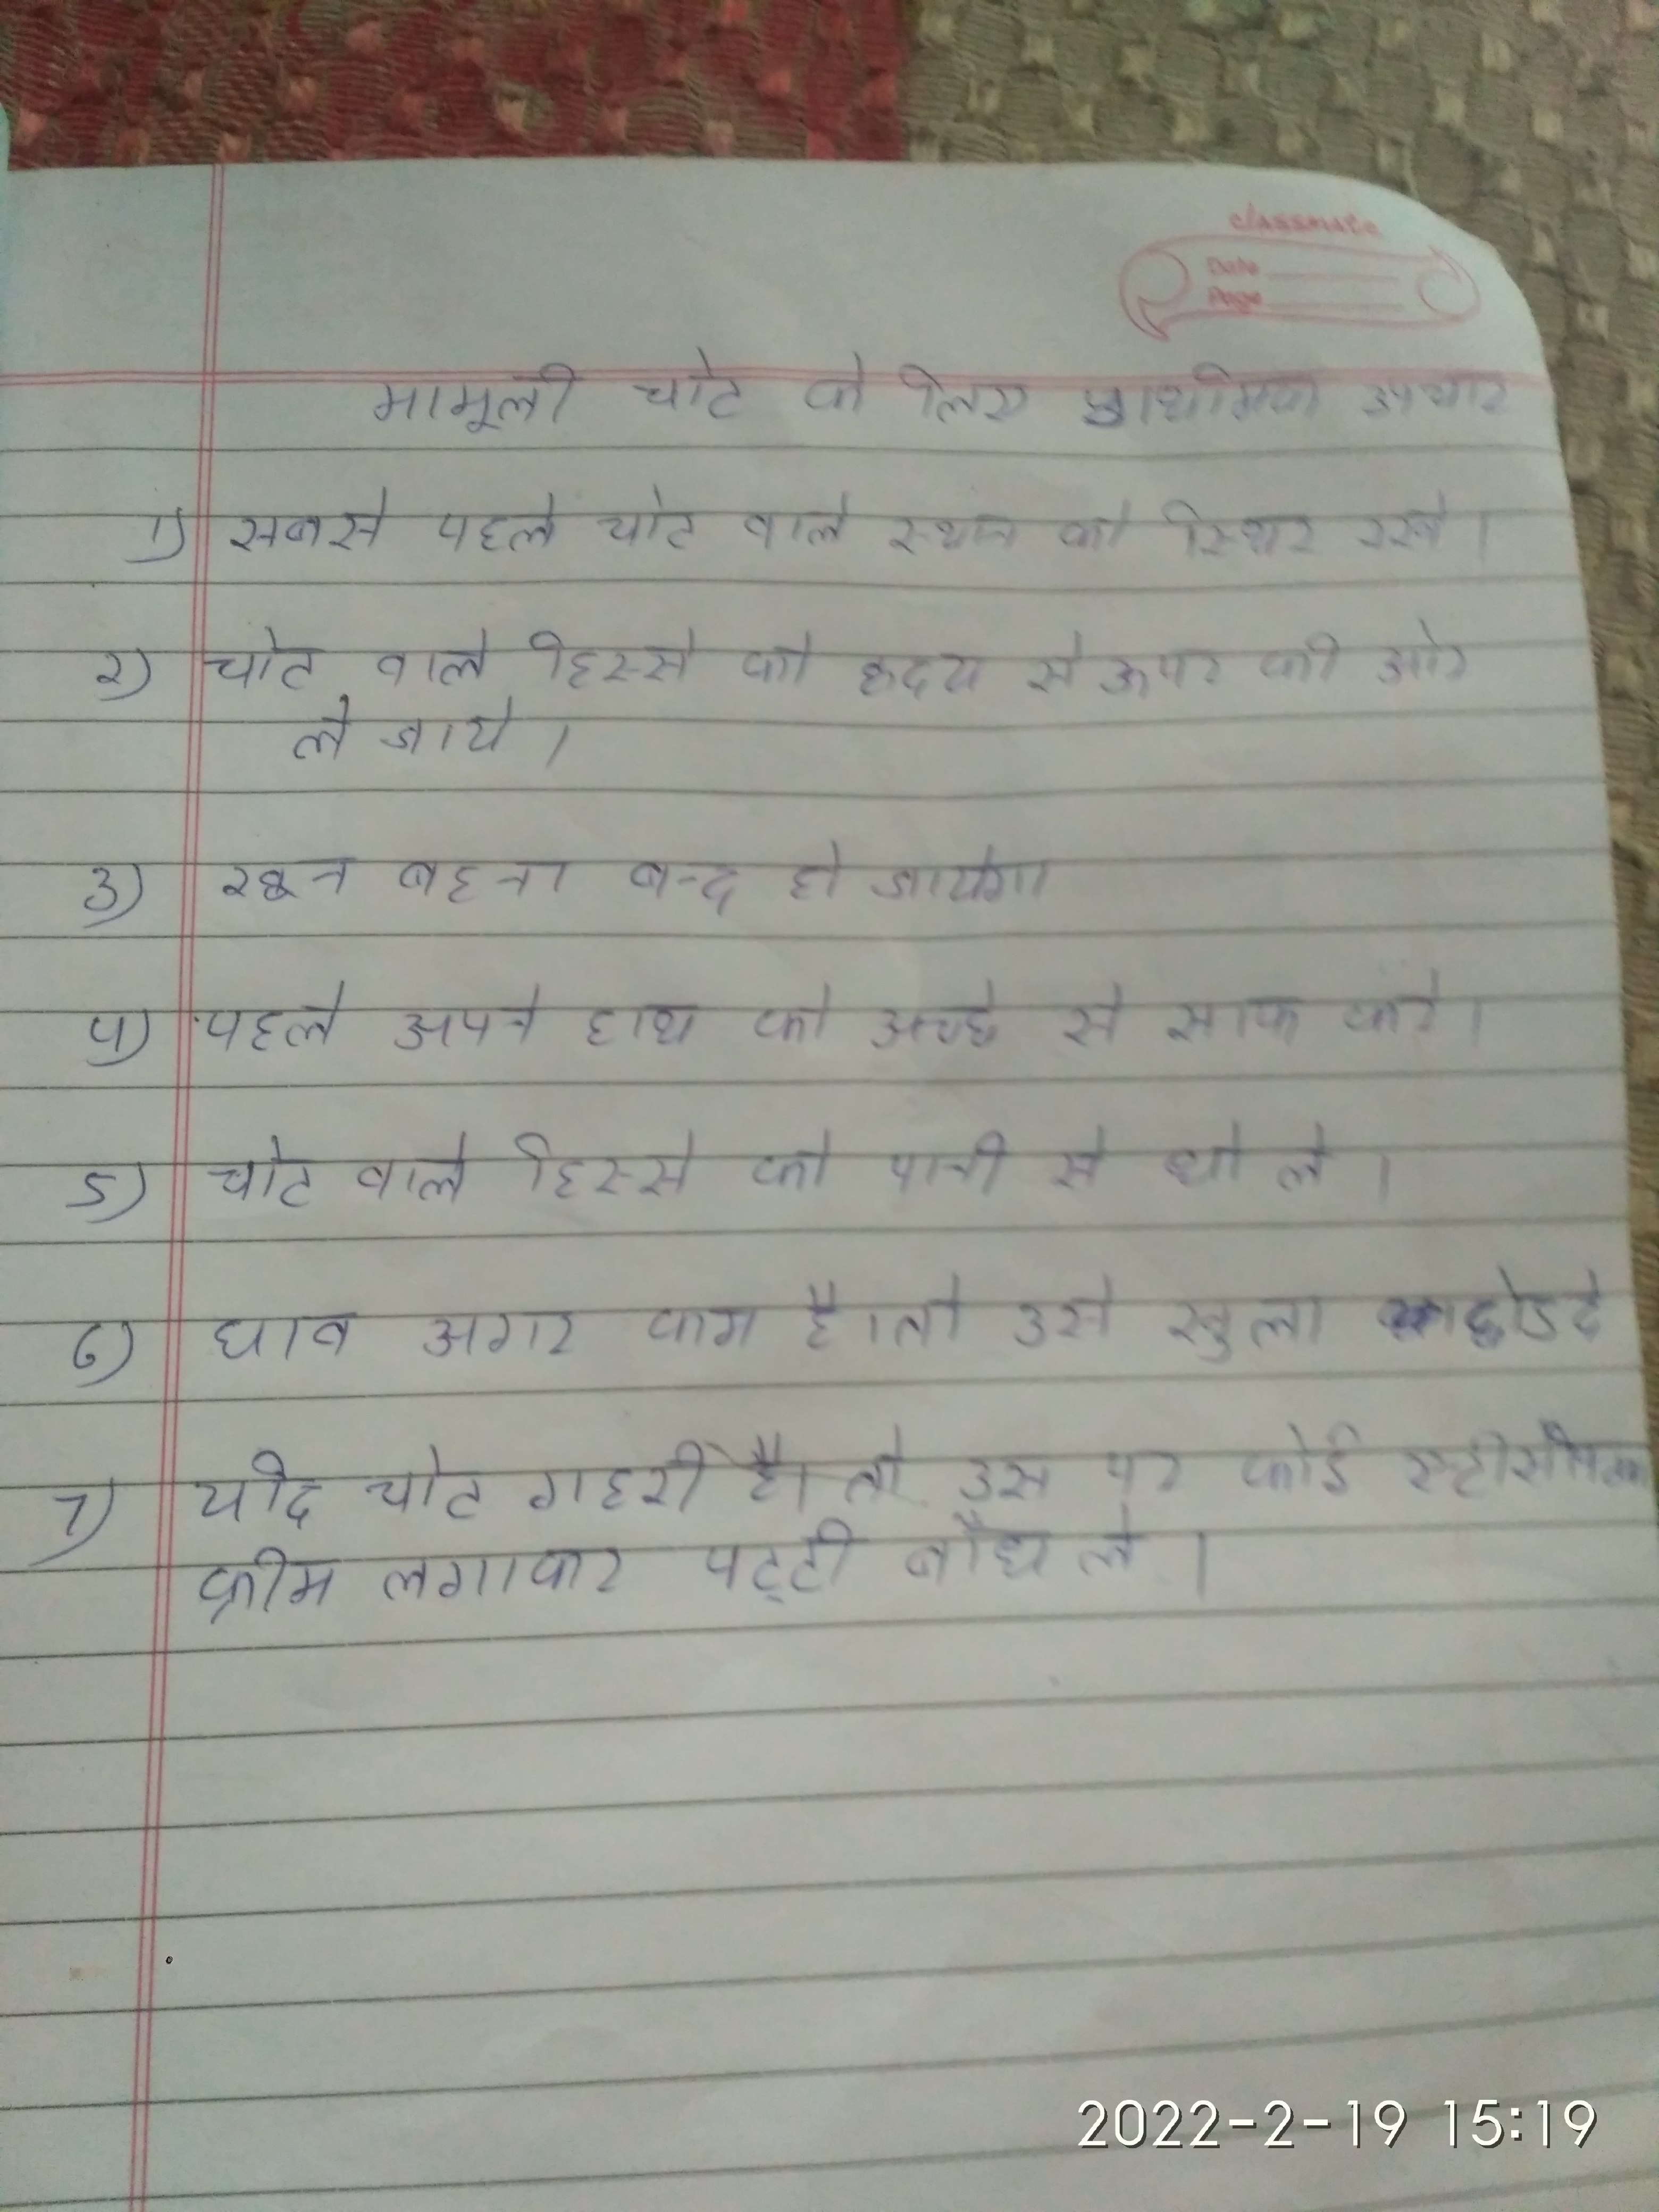 classmate
Date
Page
मामूली चोट के लिए प्राथमिक उपचार
1) सबसे पहले चोट वाले स्थान को स्थिर रखे।
२) चोट वाले हिस्से को हृदय से ऊपर की ओर
ले जाये।
3) खून बहना बन्द हो जायेगा
4) पहले अपने हाथ को अच्छे से साफ करे।
5) चोट वाले हिस्से को पानी से धो ले।
6) घाव अगर कम है। तो उसे खुला छोड दे
7) यदि चोट गहरी है। तो उस पर कोई
क्रीम लगाकर पट्टी बाँध ले।
2022-2-19 15:19